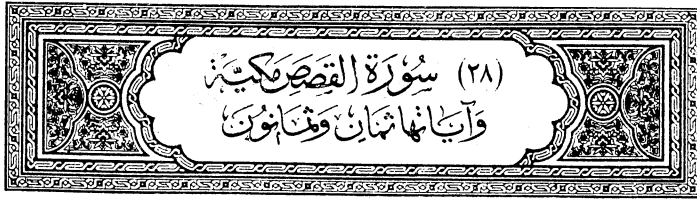 (٢٨) سُورَة القَصَصِ مَكيَّة
وَآيَاتها ثَمَانِ وَثمَانون